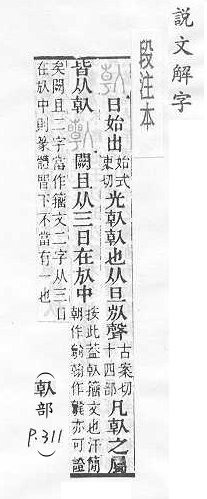 説文解字
段注本
倝 日始出始式束切光倝倝也从旦㫃聲古案切十四部凡倝之屬
皆从倝 闕且从三日在㫃中按此蓋倝籒文也汗簡朝作翰作亦可證
矣闕且二字當作籒文二字从三日在㫃中則篆體冐下不當有一也
（倝部）
P.311